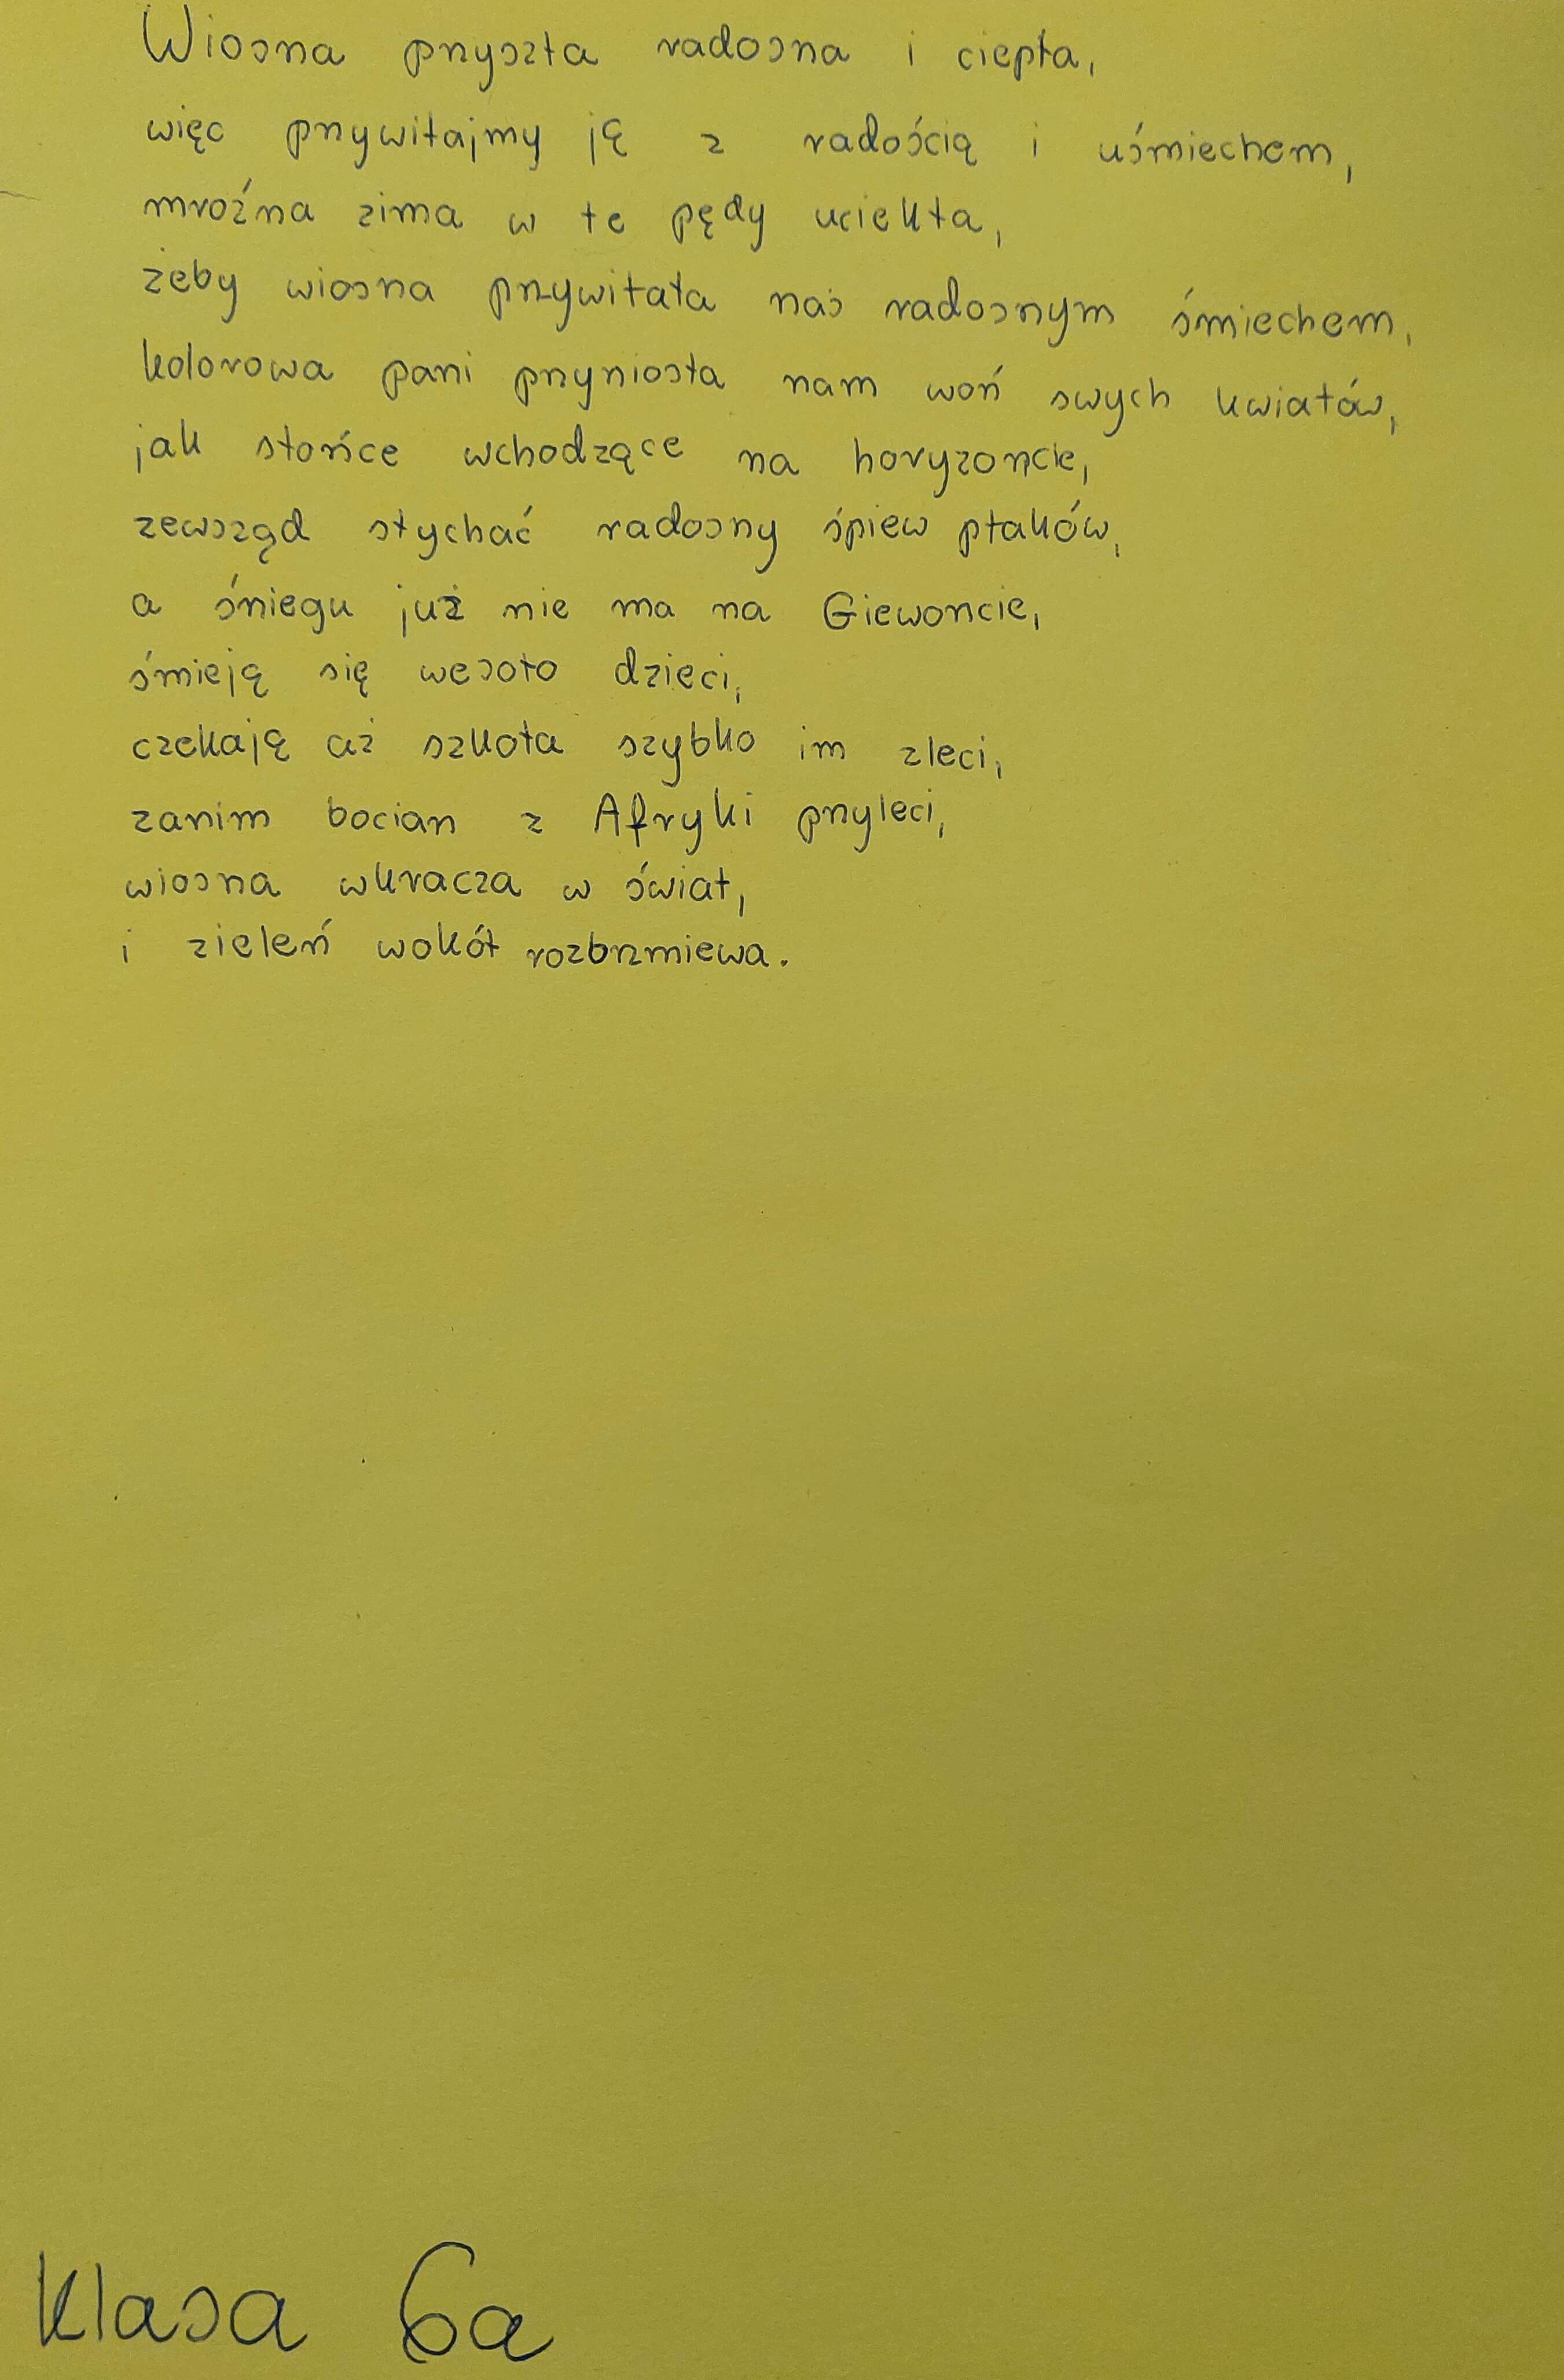 Wiosna przyszła radosna i ciepła,
więc przywitajmy ją z radością i uśmiechem,
mroźna zima w te pędy uciekła,
żeby wiosna przywitała nas radosnym śmiechem,
kolorowa pani przyniosła nam woń swych kwiatów,
jak słońce wchodzące na horyzoncie,
zewsząd słychać radosny śpiew ptaków,
a śniegu już nie ma na Giewoncie,
śmieją się wesoło dzieci,
czekają aż szkoła szybko im zleci,
zanim bocian z Afryki przyleci,
wiosna wkracza w świat,
i zieleń wokół rozbrzmiewa.
Klasa 6a